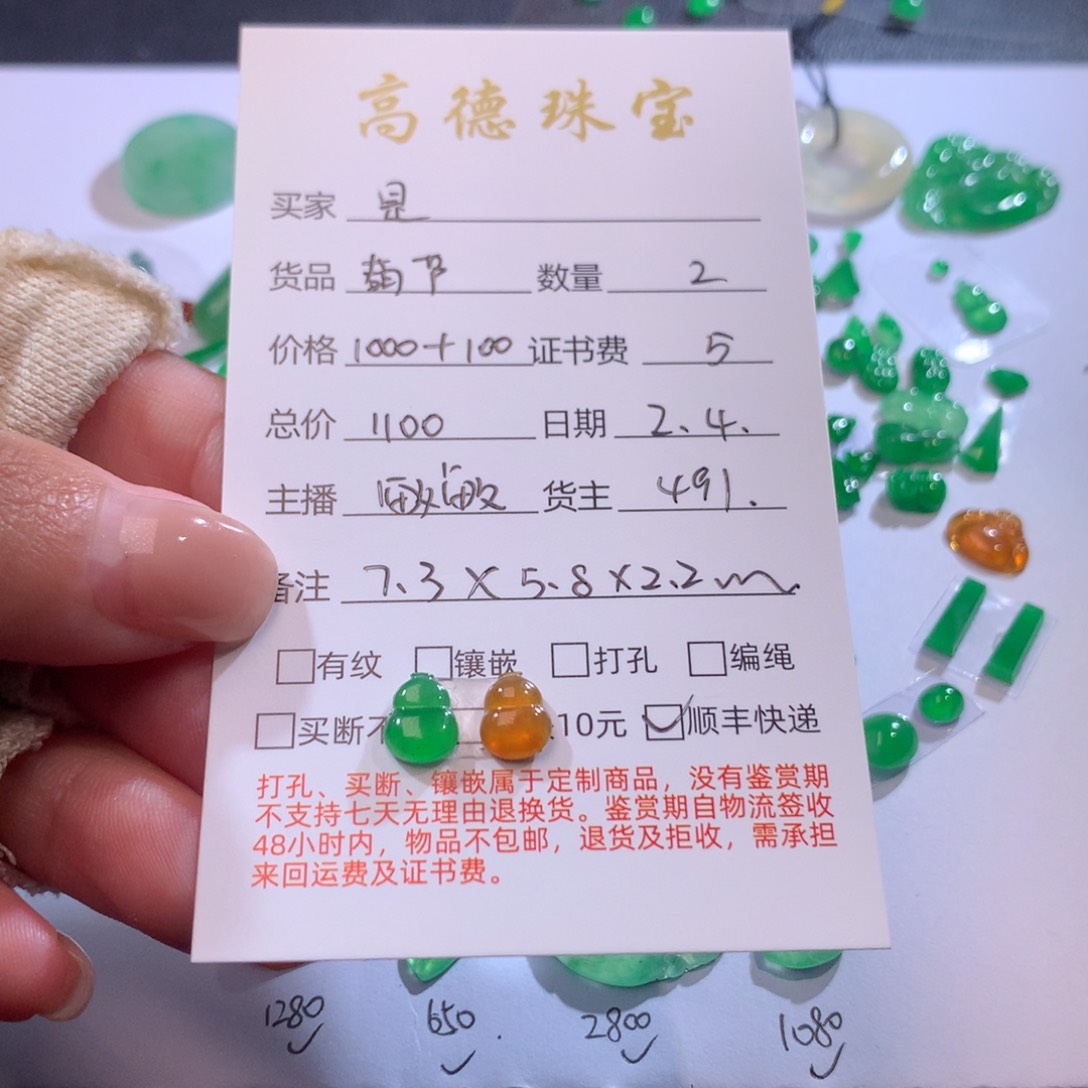 高德珠宝
买家 是
货品 葫节 数量 2
价格 1000+100 证书费 5
总价 1100 日期 2.4.
主播 敏敏 货主 491.
备注 7.3×5.8×2.2
□有纹 □镶嵌 □打孔 □编绳
□买断 10元 ☑顺丰快递
打孔、买断、镶嵌属于定制商品，没有鉴赏期
不支持七天无理由退换货。鉴赏期自物流签收
48小时内，物品不包邮，退货及拒收，需承担
来回运费及证书费。
1280 650 2800 1080